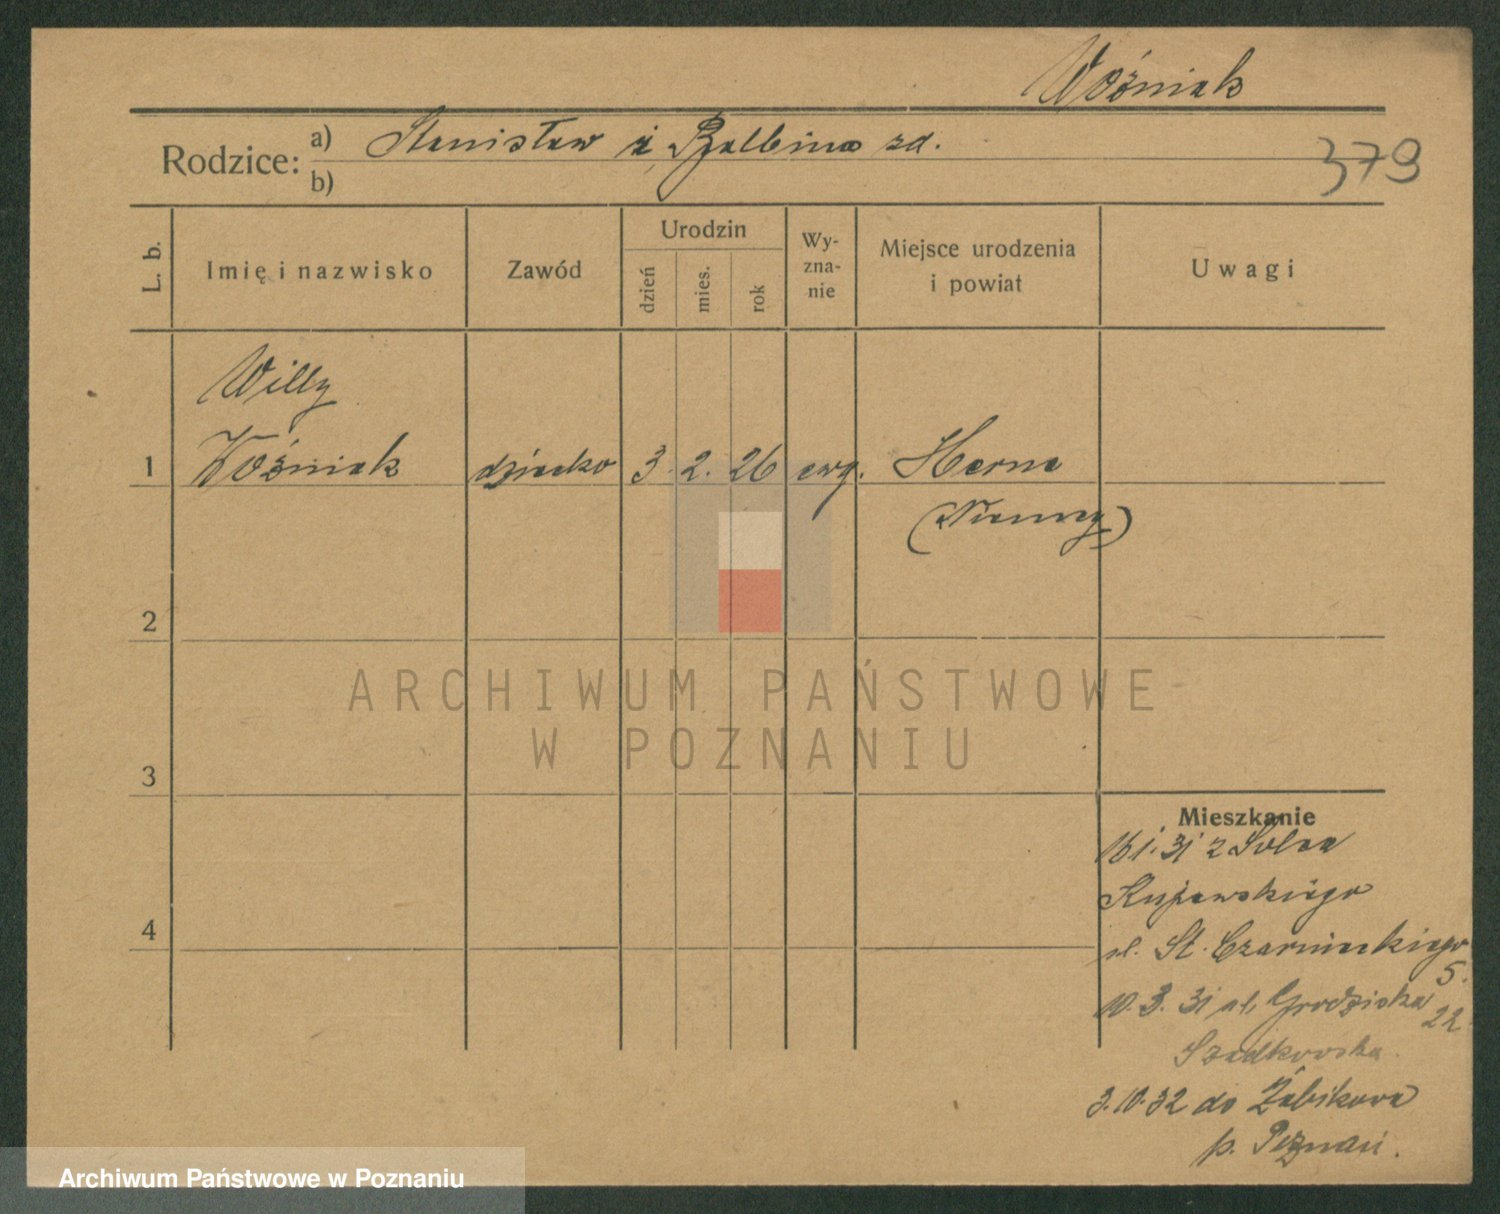 Woźniak
Rodzice: a) Stanisław i Balbina zd.
b)
379
L. b.
Imię i nazwisko
Zawód
Urodzin
dzień
mies.
rok
Wy-
zna-
nie
Miejsce urodzenia
i powiat
Uwagi
Willy
1 Woźniak dziecko 3. 2. 26 ewg. Herne
(Niemcy)
2
3
4
ARCHIWUM PAŃSTWOWE
W POZNANIU
Mieszkanie
16 1. 31 z Solca
Kujawskiego
ul. St. Czarnieckiego
5.
10. 3. 31 ul. Grodziska
22
Szadkowska.
3.10.32 do Żabikowa
p. Poznań.
Archiwum Państwowe w Poznaniu